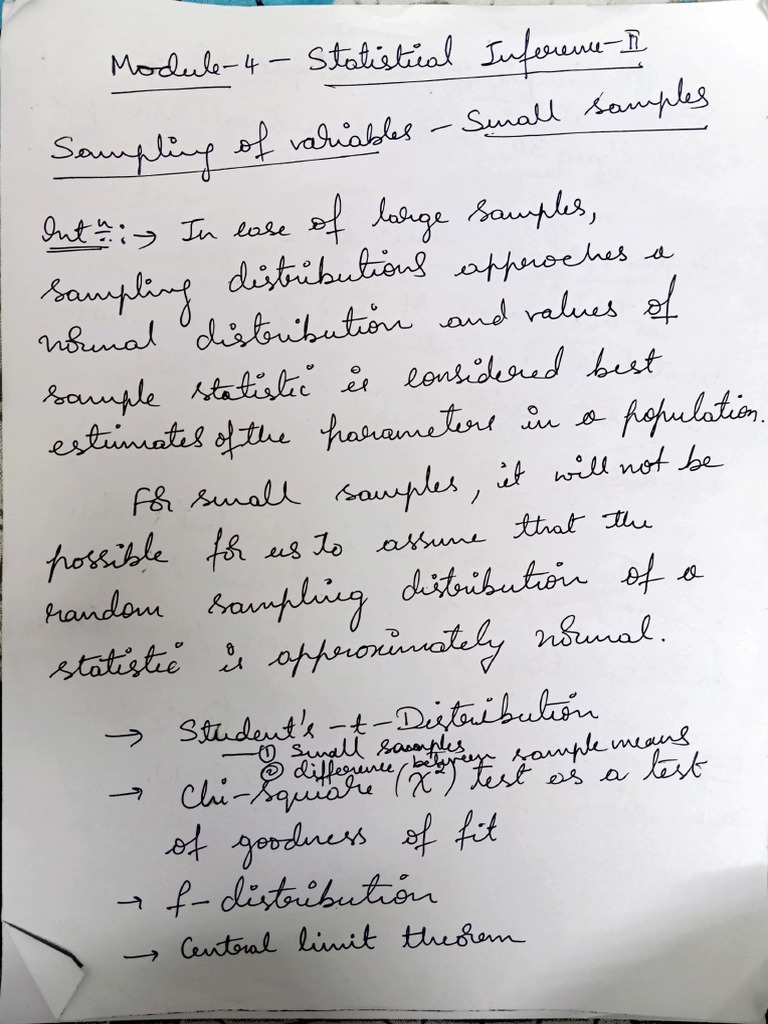 Module-4 - Statistical Inference-II
Sampling of variables - Small samples
Intn:→ In case of large samples,
sampling distributions approaches a
normal distribution and values of
sample statistic is considered best
estimates of the parameters in a population.
For small samples, it will not be
possible for us to assume that the
random sampling distribution of a
statistic is approximately normal.
→ Student's -t-Distribution
① Small samples
② difference between sample means
→ Chi-square (χ²) test as a test
of goodness of fit
→ f-distribution
→ Central limit theorem